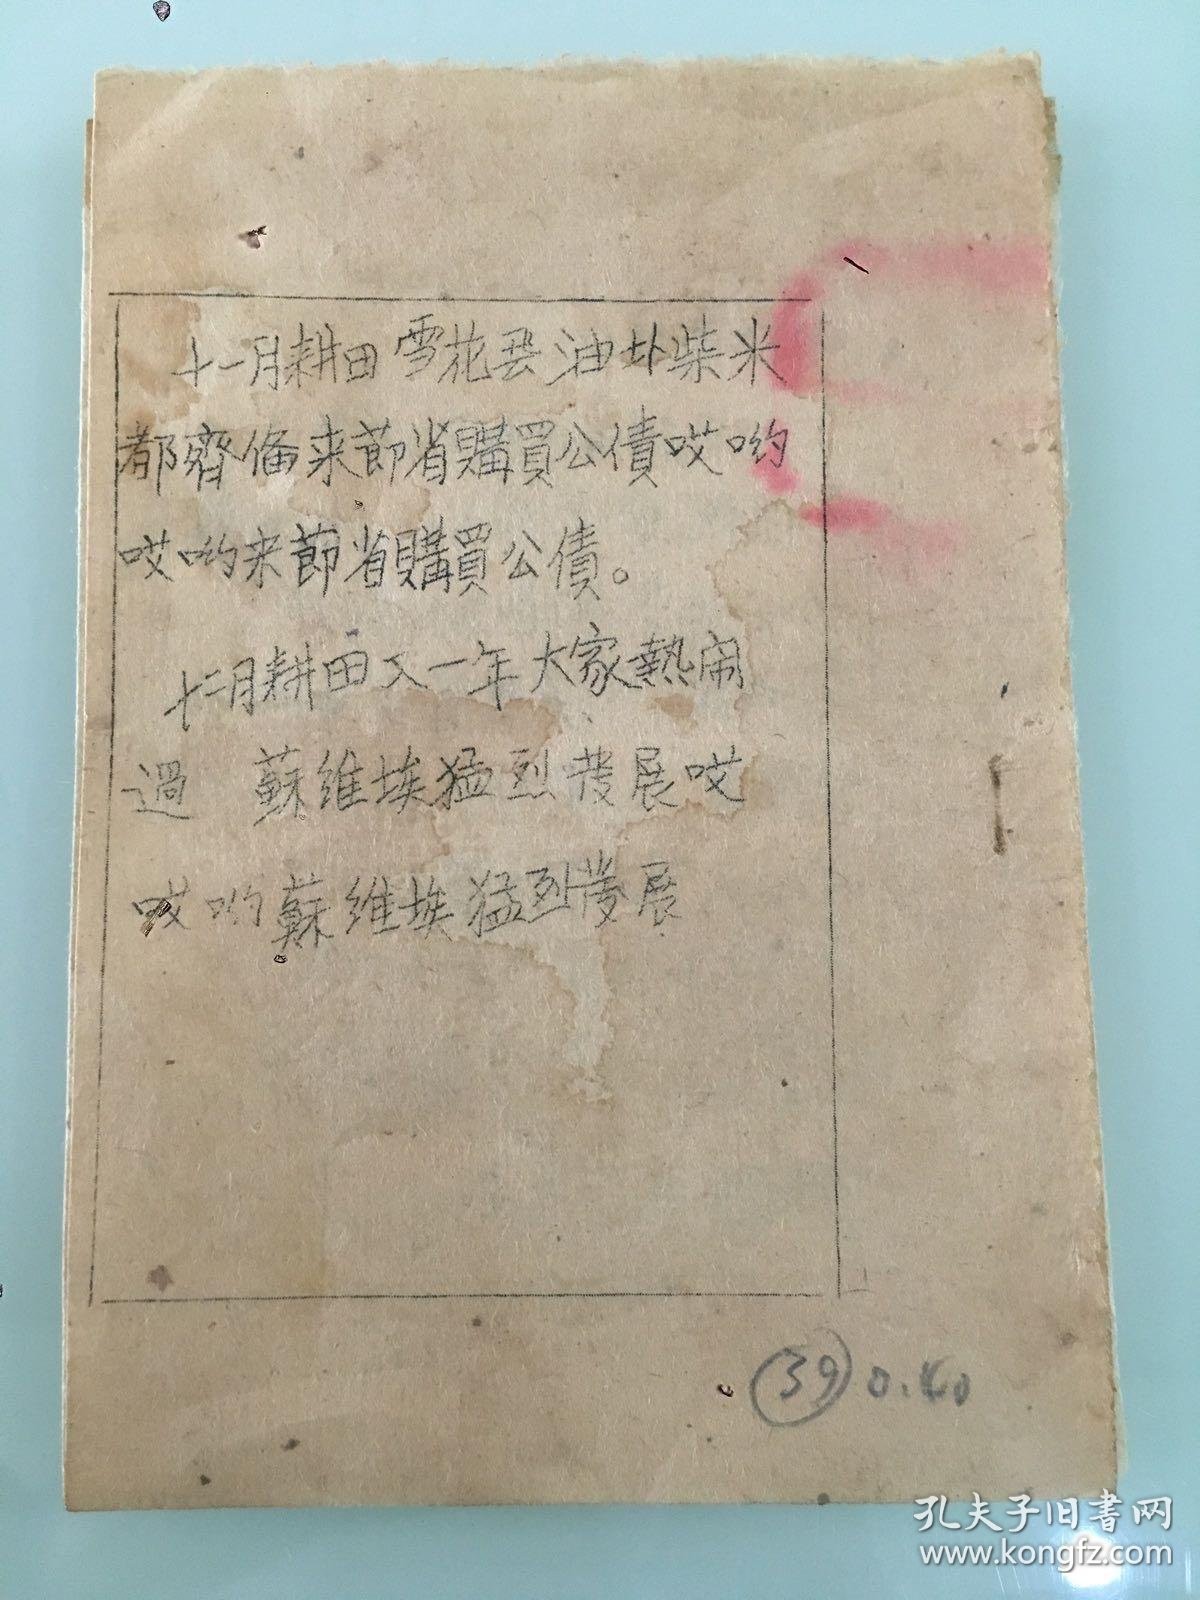 十一月耕田雪花丟油盐柴米
都齊俻来節省購買公債哎哟
哎哟来節省購買公債。
十二月耕田又一年大家熱闹
過 蘇維埃猛烈發展哎
哎哟蘇維埃猛烈發展
39 0.40
孔夫子旧書网
www.kongfz.com